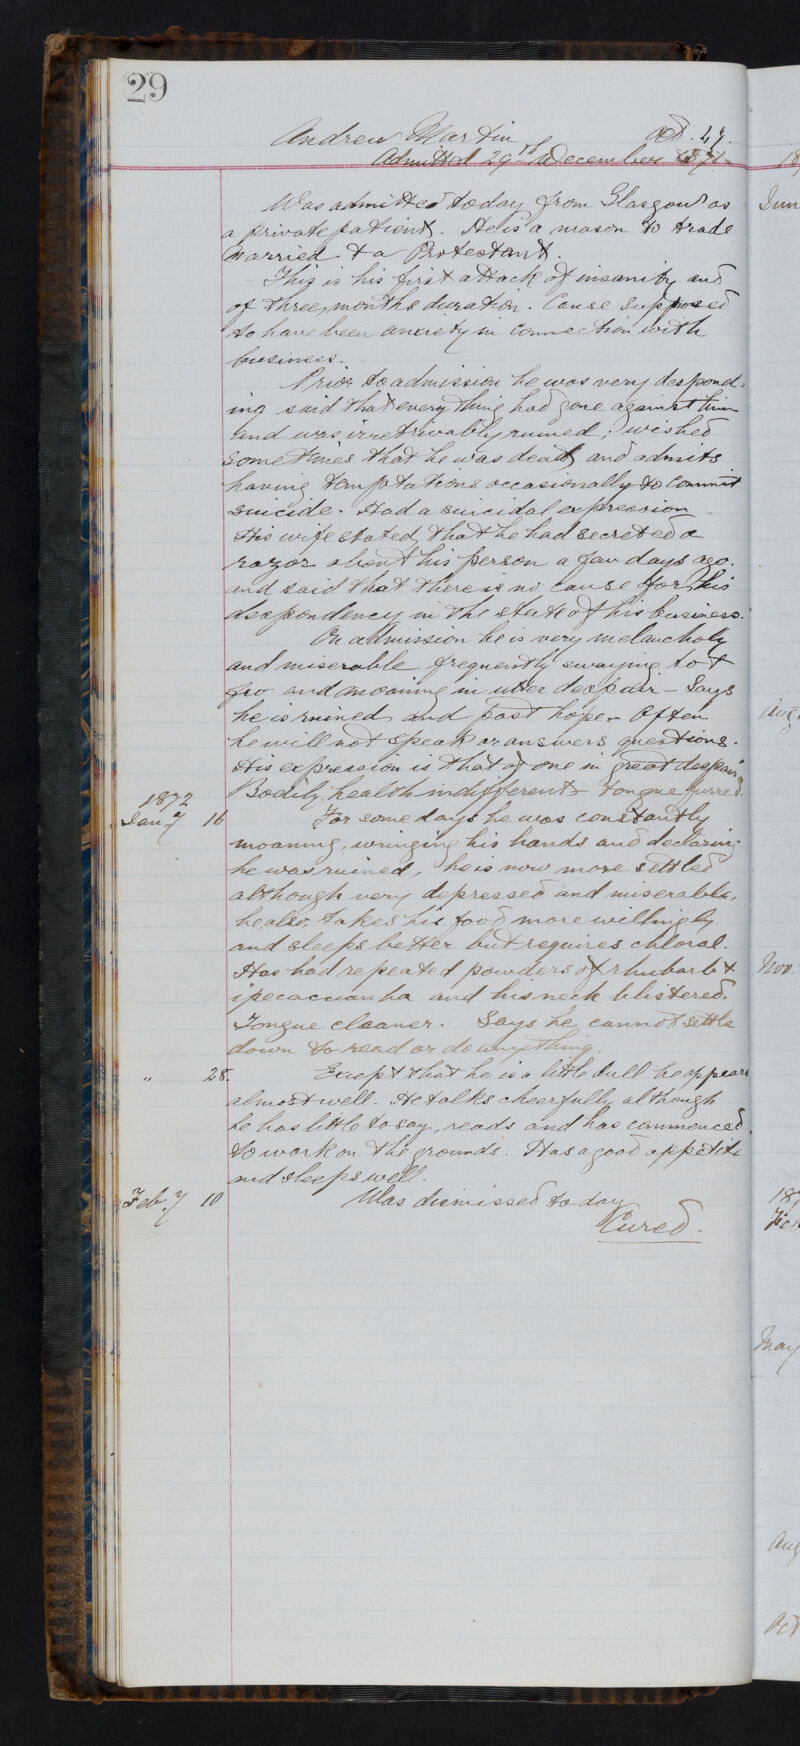 29
Andrew Martin aet. 47.
Admitted 29th December 1871
Was admitted today from Glasgow as
a private patient. He is a mason to trade
married & a Protestant.
This is his first attack of insanity and
of three months duration. Cause supposed
to have been anxiety in connection with
business.
Prior to admission he was very despond=
ing said that every thing had gone against him
and was irretrivably ruined; wished
sometimes that he was dead, and admits
having temptations occasionally to commit
suicide. Had a suicidal expression
His wife stated, that he had secreted a
razor about his person a few days ago.
and said that there is no cause for his
despondency in the state of his business.
On admission he is very melancholy
and miserable frequently swaying to &
fro and moaning in utter despair – Says
he is ruined and past hope. Often
he will not speak or answers questions.
His expression is that of one in great despair
Bodily health indifferent – tongue furred.
1872
Jany 16 For some days he was constantly
moaning, wringing his hands and declaring
he was ruined, he is now more settled
although very depressed and miserable,
he also takes his food more willingly
and sleeps better but requires chloral.
Has had repeated powders of rhubarb &
ipecacuanha and his neck blistered.
Tongue cleaner. Says he cannot settle
down to read or do anything
" 28. Except that he is a little dull he appears
almost well. He talks cheerfully although
he has little to say, reads and has commenced
to work on the grounds. Has a good appetite
and sleeps well.
Feb.y 10 Was dismissed today
Cured.
Jun
Aug
Nov.
187
Feb
May
Aug
Oct